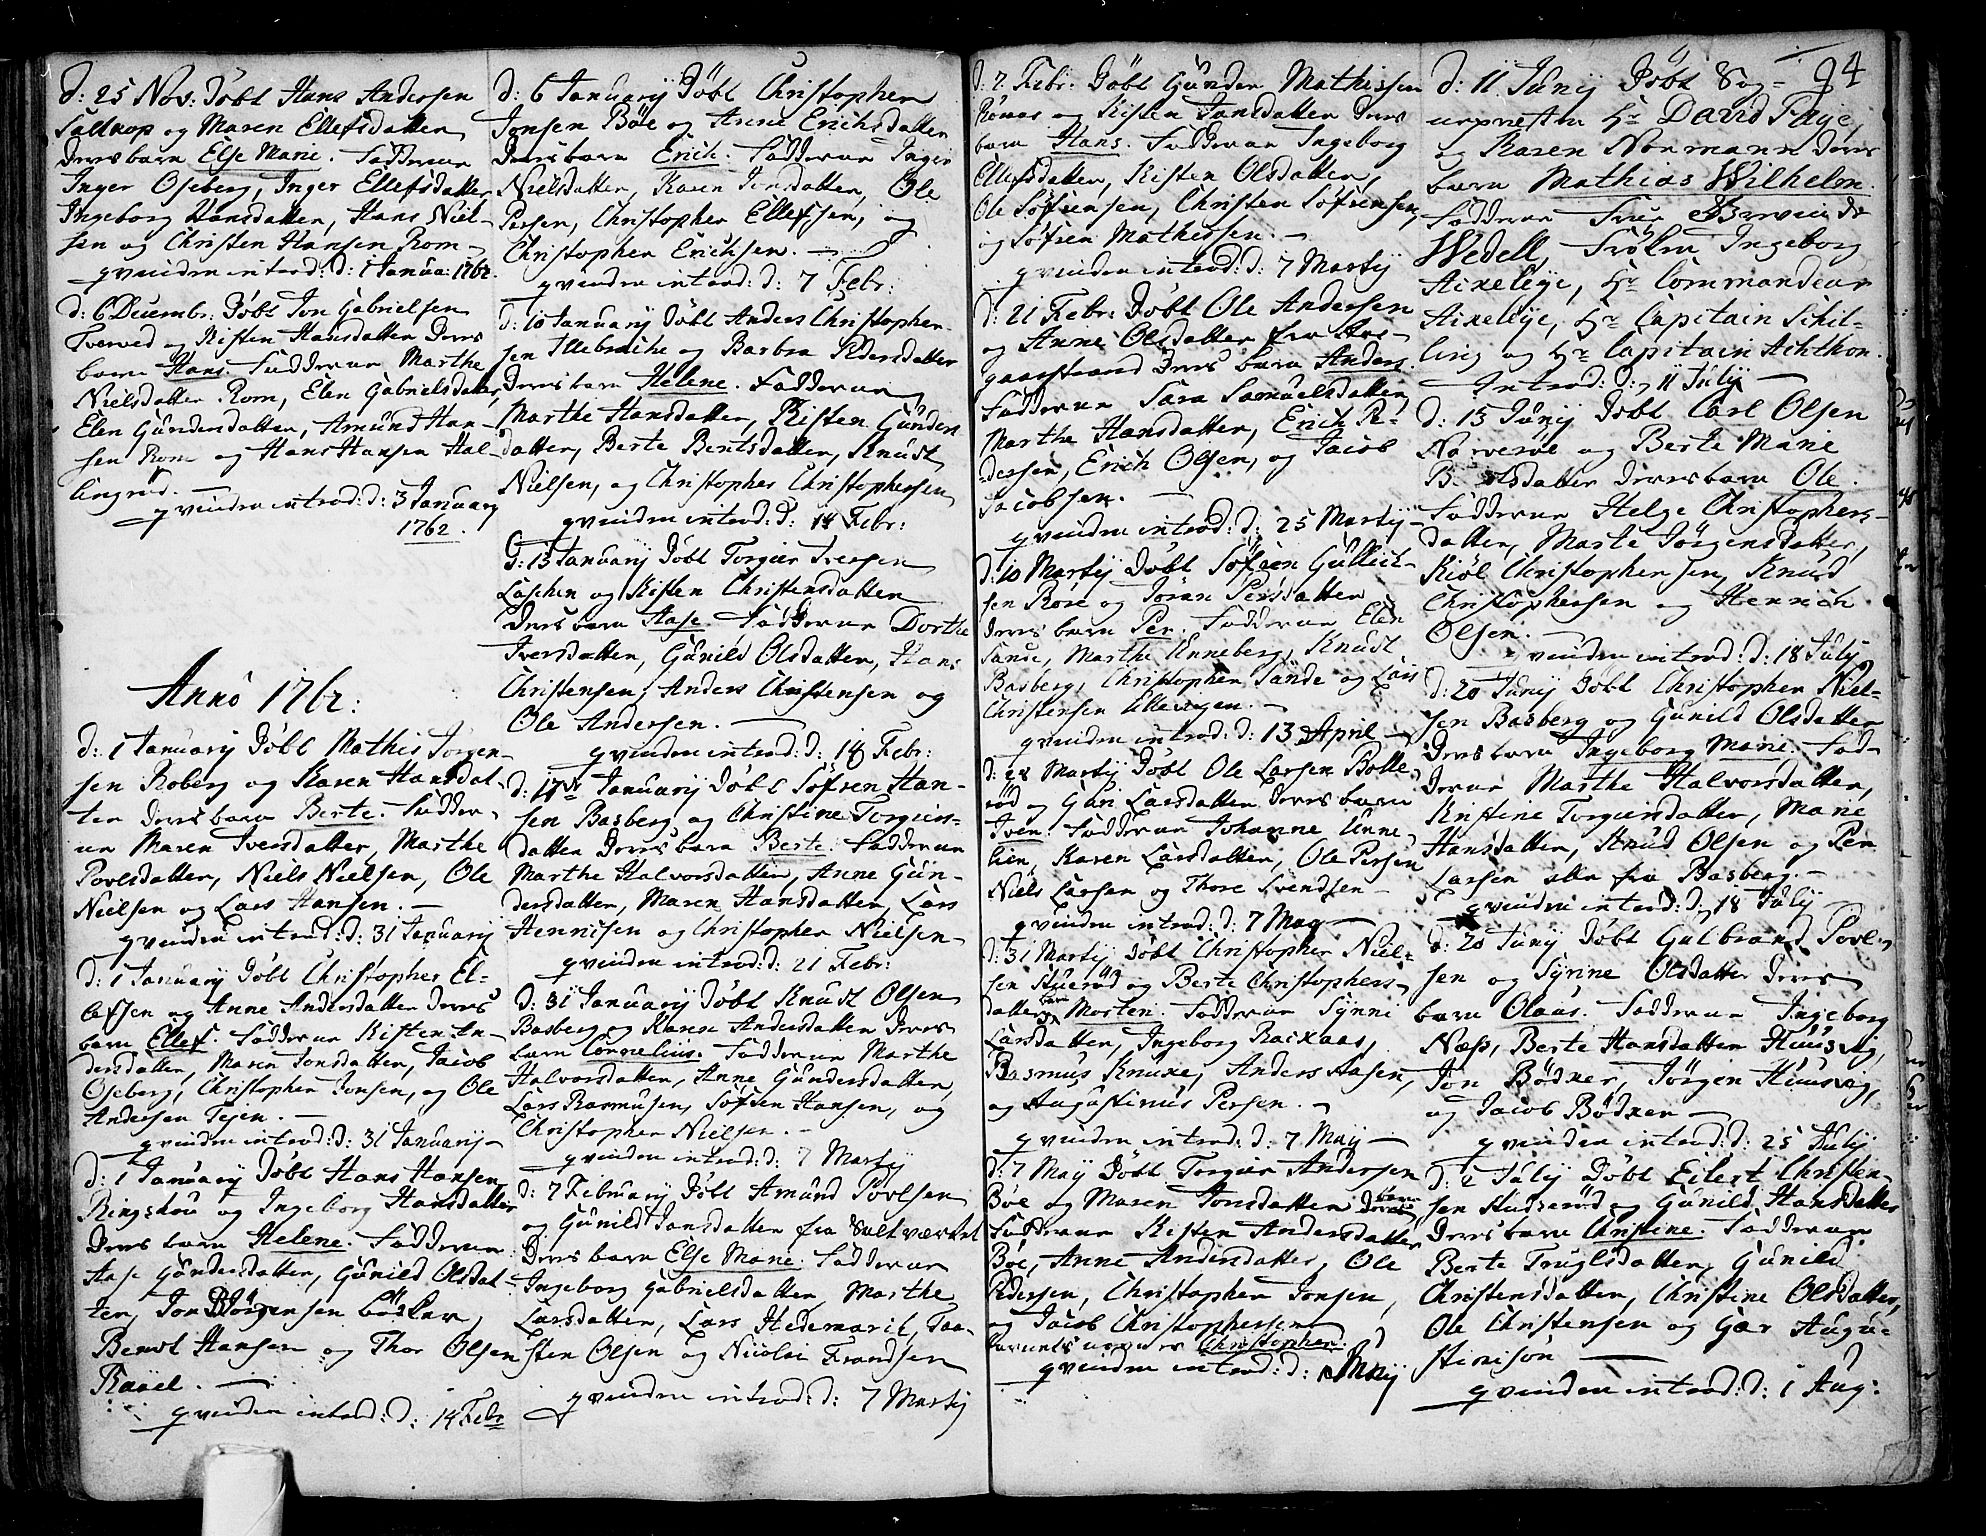 d: 25 Nov: Döbt Hans Andersen
Saltkop og Maren Ellefsdatter
Deres barn Else Marie. Fadderne
Inger Oseberg, Inger Ellefsdatter
Ingeborg Hansdatter, Hans Niel-
sen og Christen Hansen Rom-
qvinden introd: d: 1 Janua: 1762.
d: 6 Decembr: Döbt Jon Gabrielsen
Tverved og Kisten Hansdatter Deres
barn Hans. Fadderne Marthe
Nielsdatter Rom, Elen Gabrielsdatter,
Elen Gundersdatter, Amund Han-
sen Rom og Hans Hansen Hal-
lingrød.
qvinden introd: d: 3 January
1762.
Anno 1762:
d: 1 January Döbt Mathis Jörgen-
sen Roberg og Karen Hansdat-
ter Deres barn Berte. Fadder-
ne Maren Iversdatter, Marthe
Povlsdatter, Niels Nielsen, Ole
Nielsen og Lars Hansen.
qvinden introd: d: 31 January
d: 1 January Döbt Christopher El-
lefsen og Anne Andersdatter Deres
barn Ellef. Fadderne Kisten An-
dersdatter, Maren Jonsdatter, Jacob
Oseberg, Christopher Jonsen, og Ole
Andersen Tejen.
qvinden introd: d: 31 January
d: 1 January Döbt Hans Hansen
Ringshou og Ingeborg Hansdatter
Deres barn Helene. Fadderne
Aase Gundersdatter, Gunild Olsdat-
ter, Jon Börgensen
Bernt Hansen og Thor Olsen
Ravel.
qvinden introd: d: 14 Febr
d: 6 January Döbt Christopher
Jonsen Böe og Anne Erichsdatter
Deres barn Erich. Fadderne Inger
Nielsdatter, Karen Jonsdatter, Ole
Persen, Christopher Ellefsen, og
Christopher Erichsen.
qvinden introd: d: 7 Febr:
d: 10 January Döbt Anders Christopher-
sen Illebreche og Barbra Pedersdatter
Deres barn Helene. Fadderne
Marthe Hansdatter, Kisten Gunders
datter, Berte Berntsdatter, Knudt
Nielsen, og Christopher Christophersen
qvinden introd: d: 14 Febr:
d: 13 January Döbt Torgier Iversen
Laschen og Kisten Christensdatter
Deres barn Aase. Fadderne Dorthe
Iversdatter, Gunild Olsdatter, Hans
Christensen, Anders Christensen og
Ole Andersen.
qvinden introd: d: 18 Febr:
d: 17de January Döbt Söfren Han-
sen Basberg og Christine Torgiers-
datter Deres barn Berte. Fadderne
Marthe Halvorsdatter, Anne Gun-
dersdatter, Maren Hansdatter, Lars
Hennisen og Christopher Nielsen
qvinden introd: d: 21 Febr:
d: 31 January Döbt Knudt Olsen
Basberg og Karen Andersdatter Deres
barn Cornelius. Fadderne Marthe
Halvorsdatter, Anne Gundersdatter,
Lars Rasmusen, Söfren Hansen, og
Christopher Nielsen.
qvinden introd: d: 7 Martij
d: 7 February Döbt Amund Povlsen
og Gunild Jansdatter fra Saltværket
Deres barn Else Marie. Fadderne
Ingeborg Gabrielsdatter, Marthe
Larsdatter, Lars Hedemark, Taa-
sten Olsen og Nicolai Frandsen
qvinden introd: d: 7 Martij
94
d: 7 Febr: Döbt Gunder Mathissen
Römas og Kisten Jansdatter Deres
barn Hans. Fadderne Ingeborg
Ellefsdatter, Kisten Olsdatter,
Ole Söfrensen, Christen Söfrensen,
og Söfren Mathissen.
qvinden introd: d: 7 Martij
d: 21 Febr: Döbt Ole Andersen
og Anne Olsdatter fra Aas-
gaarstrand Deres barn Anders.
Fadderne Sara Samuelsdatter,
Marthe Hansdatter, Erich Pe-
dersen, Erich Olsen, og Jacob
Jacobsen.
qvinden introd: d: 25 Martij
d: 10 Martij Döbt Söfren Gullich-
sen Röre og Joran Persdatter
Deres barn Per. Fadderne Elen
Sande, Marthe Unneberg, Knudt
Basberg, Christopher Sande og Lars
Christensen Ellevegen.
qvinden introd: d: 13 April
d: 28 Martij Döbt Ole Larsen Bolle-
röd og Guri Larsdatter Deres barn
Iver. Fadderne Johanne Unne-
lien, Karen Larsdatter, Ole Persen
Niels Larsen og Thore Svendsen
qvinden introd: d: 7 May
d: 31 Martij Döbt Christopher Niel-
sen Hueröd og Berte Christophers-
datters barn Morten. Fadderne Synni
Larsdatter, Ingeborg Rackaas,
Rasmus Knuxe, Anders Aasen,
og Augustinus Persen.
qvinden introd: d: 7 May
d: 7 May Döbt Torgier Andersen
Böe og Maren Jonsdatter Deres barn
Fadderne Kisten Andersdatter
Böe, Anne Andersdatter, Ole
Pedersen, Christopher Jonsen,
og Jacob Christophersen
barnets navn er Christopher.
qvinden introd: d: Maij
d: 11 Junij Döbt Sog-
nepresten Hr David Faye
og Karen Normann Deres
barn Mathias Wilhelm.
Fadderne Frue
Wedell, Frökn Ingeborg
Aixeleye, Hr Commandeur
Aixeleye, Hr Capitain Schil-
ling og Hr Capitain Achthon.
Introd: d: 11 July
d: 13 Junij Döbt Carl Olsen
Norveröe og Berte Marie
Deres barn Ole.
Fadderne Helge Christophers-
datter, Marte Jörgensdatter,
Kiöl Christophersen, Knud
Christophersen og Henrich
Olsen.
qvinden introd: d: 18 July
d: 20 Junij Döbt Christopher Niel-
sen Basberg og Gunild Olsdatter
Deres barn Ingeborg Marie. Fad-
derne Marthe Halvorsdatter,
Kristine Torgiersdatter, Marie
Hansdatter, Knud Olsen og Per
Larsen alle fra Basberg.
qvinden introd: d: 18 July
d: 20 Juny Döbt Gulbrand Povl-
sen og Syrine Olsdatter Deres
barn Olaus. Fadderne Ingeborg
Næss, Berte Hansdatter Huusvig,
Jon Bödker, Jörgen Huusvig,
og Jacob Bödker
qvinden introd: d: 25 July
d: 2 July Döbt Eilert Christen-
sen Huseröd og Gunild Hansdatter
Deres barn Christine. Fadderne
Berte Truglsdatter, Gunild
Christensdatter, Christine Olsdatter,
Ole Christensen og Gær Augu-
stinison
qvinden introd: d: 1 Aug: